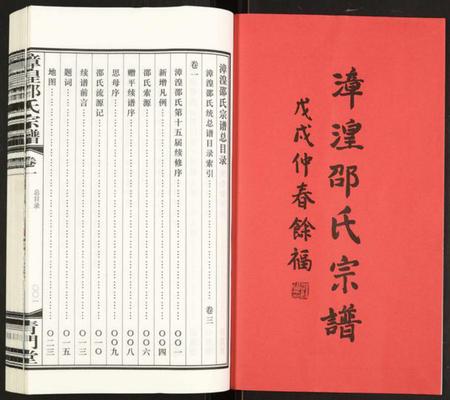 漳湟邵氏宗譜
戊戌仲春餘福
漳湟邵氏宗譜总目录
漳湟邵氏统总谱目录索引……卷三
卷一
漳湟邵氏第十五届续修序……〇〇一
新增凡例……〇〇四
邵氏索源……〇〇六
赠平续谱序……〇〇八
思母序……〇〇九
邵氏流源记……〇一〇
续谱前言……〇一三
题词……〇一五
地图……〇二三
漳湟邵氏宗譜
卷一
总目录
〇〇一
青門堂